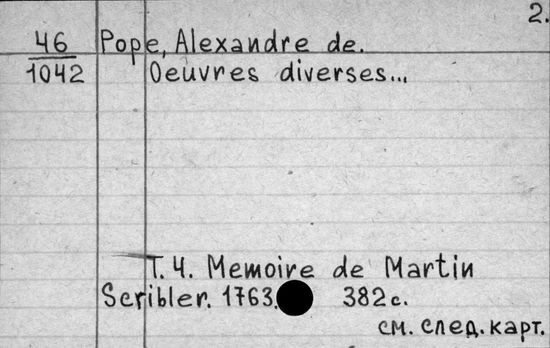 2.
46 Pope, Alexandre de.
1042 Oeuvres diverses...
T. 4. Memoire de Martin
Scribler. 1763. 382 с.
см. след. карт.